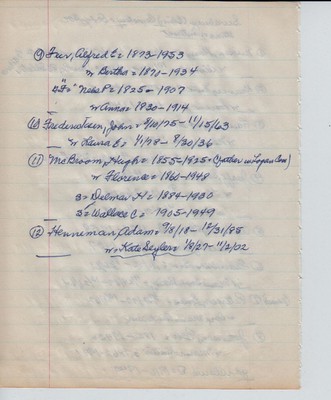 (9) Iver, Alfred C = 1873-1953
w Bertha = 1870-1934
"F = Nels P = 1825-1907
w Anna = 1830-1914
(10) Frederickson, John = 8/10/75 - 11/15/63
w Laura E = 4/1/78 - 8/30/36
(11) McBroom, Hugh = 1855-1925 = (father Logan Co)
w Florence = 1860-1948
S = Delmer H = 1884-1930
S = Wallace C = 1905-1949
(12) Henneman, Adam = 9/8/18 - 12/31/85
w = Kate Seyler = 1/8/27 - 11/2/02